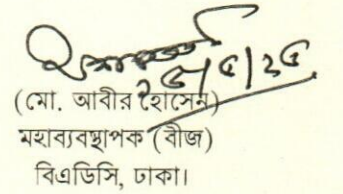 ২৫/৫/২৫
(মো. আবীর হোসেন)
মহাব্যবস্থাপক (বীজ)
বিএডিসি, ঢাকা।